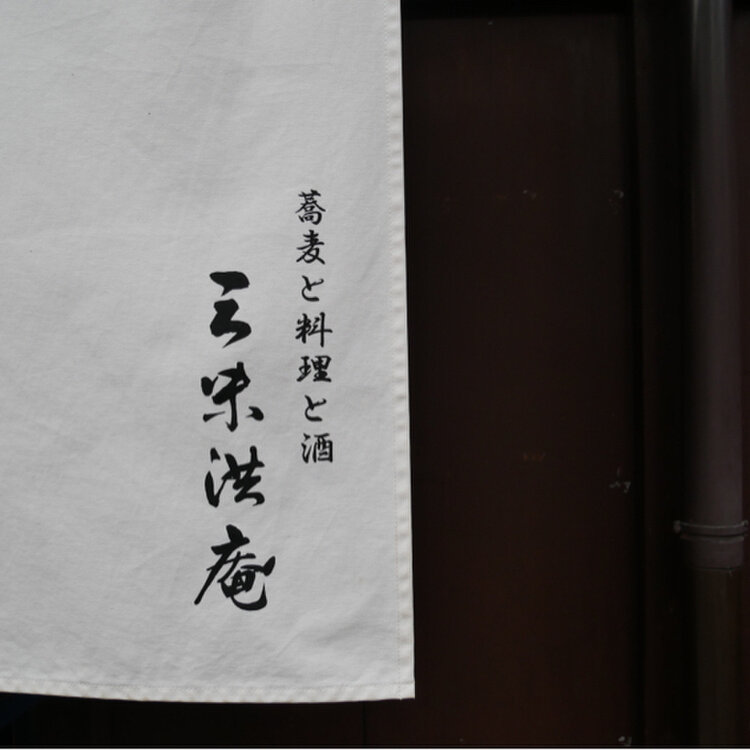 蕎麦と料理と酒
三味洪庵